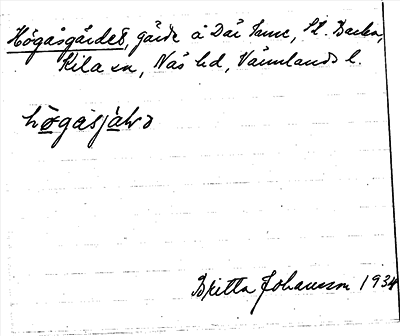 Högåsgärdet, gärde å Där hemme, St. Backa,
Kila sn, Näs hd, Värmlands l.
högåsjälvə
Britta Johansson 1934